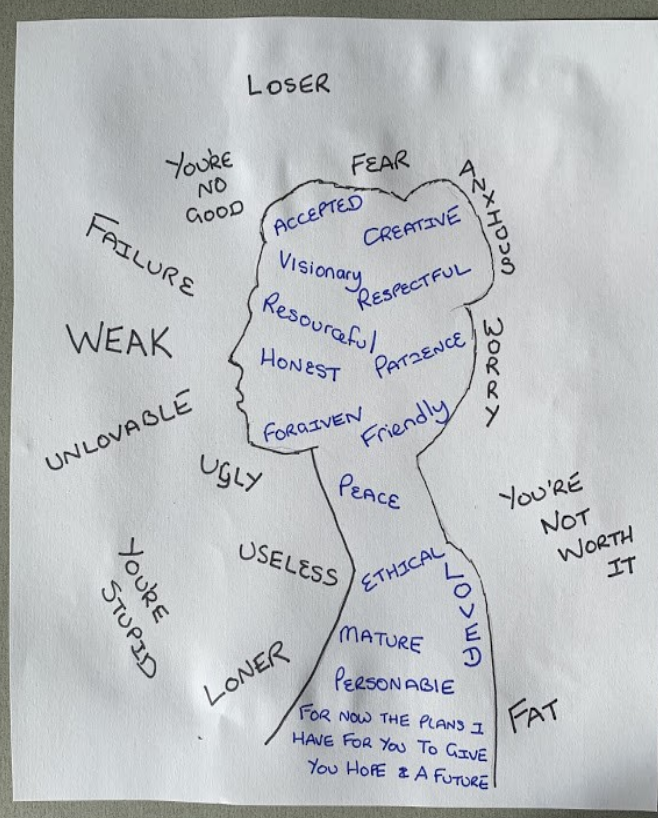 LOSER
YOU'RE
NO
GOOD
FEAR
ANXIOUS
FAILURE
WEAK
WORRY
UNLOVABLE
UGLY
YOU'RE
NOT
WORTH
IT
YOU'RE
STUPID
USELESS
LONER
FAT
ACCEPTED
CREATIVE
Visionary
RESPECTFUL
Resourceful
HONEST
PATIENCE
FORGIVEN
Friendly
PEACE
ETHICAL
LOVED
MATURE
PERSONABLE
FOR NOW THE PLANS I
HAVE FOR YOU TO GIVE
YOU HOPE & A FUTURE